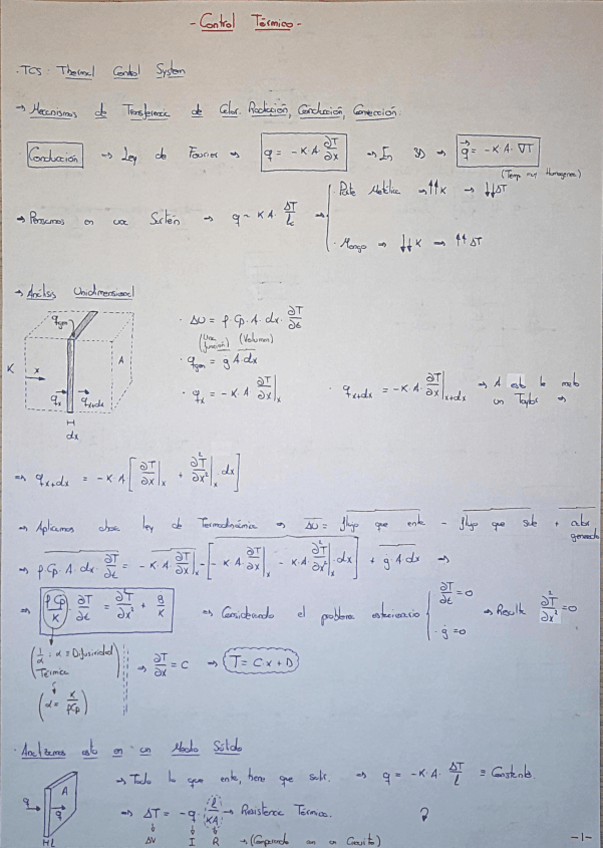 - Control Térmico -
· TCS · Thermal Control System
→ Mecanismos de Transferencia de Calor. Radiación, Conducción, Convección.
Conducción → Ley de Fourier → q = -K·A·∂T/∂x → In 3D → q⃗ = -K·A·∇T
(Temp muy Homogenea)
→ Pensamos en una Sartén → q ~ K A · ΔT/L → { Parte Metálica → ↑↑K → ↓↓ΔT
· Mango → ↓↓K → ↑↑ΔT
→ Análisis Unidimensional
q_gen
K x A
q_x q_x+dx
dx
· ΔU = ρ·Cp·A·dx·∂T/∂t
(Volumen)
· q_gen = ġ A·dx
· q_x = -K·A ∂T/∂x|x · q_x+dx = -K·A·∂T/∂x|x+dx → A esto le meto un Taylor →
→ q_x+dx = -K·A [ ∂T/∂x|x + ∂²T/∂x²|x · dx ]
→ Aplicamos ahora ley de Termodinámica → ΔU = flujo que entra - flujo que sale + calor generado
→ ρ·Cp·A·dx·∂T/∂t = -K·A·∂T/∂x|x - [ -K·A·∂T/∂x|x - K·A·∂²T/∂x²|x·dx ] + ġ A·dx →
→ ρCp/K · ∂T/∂t = ∂²T/∂x² + ġ/K → Considerando el problema estacionario { ∂T/∂t = 0 → Resulta ∂²T/∂x² = 0
· ġ = 0
(1/α : α = Difusividad Térmica) → ∂T/∂x = C → T = C·x + D
(α = K/ρCp)
· Analizamos esto en un Medio Sólido
q A q L
→ Todo lo que entra, tiene que salir. → q = -K·A·ΔT/L ≡ Constante.
→ ΔT = -q · L/KA → Resistencia Térmica.
ΔV I R → (Comparando con un Circuito)
-1-